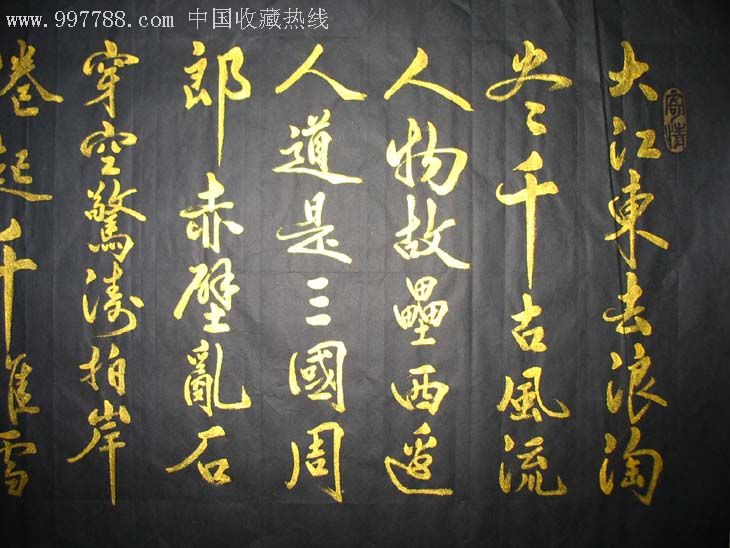 www.997788.com 中国收藏热线
大江東去浪淘
尽千古風流
人物故壘西邊
人道是三國周
郎赤壁亂石
穿空驚濤拍岸
捲起千堆雪